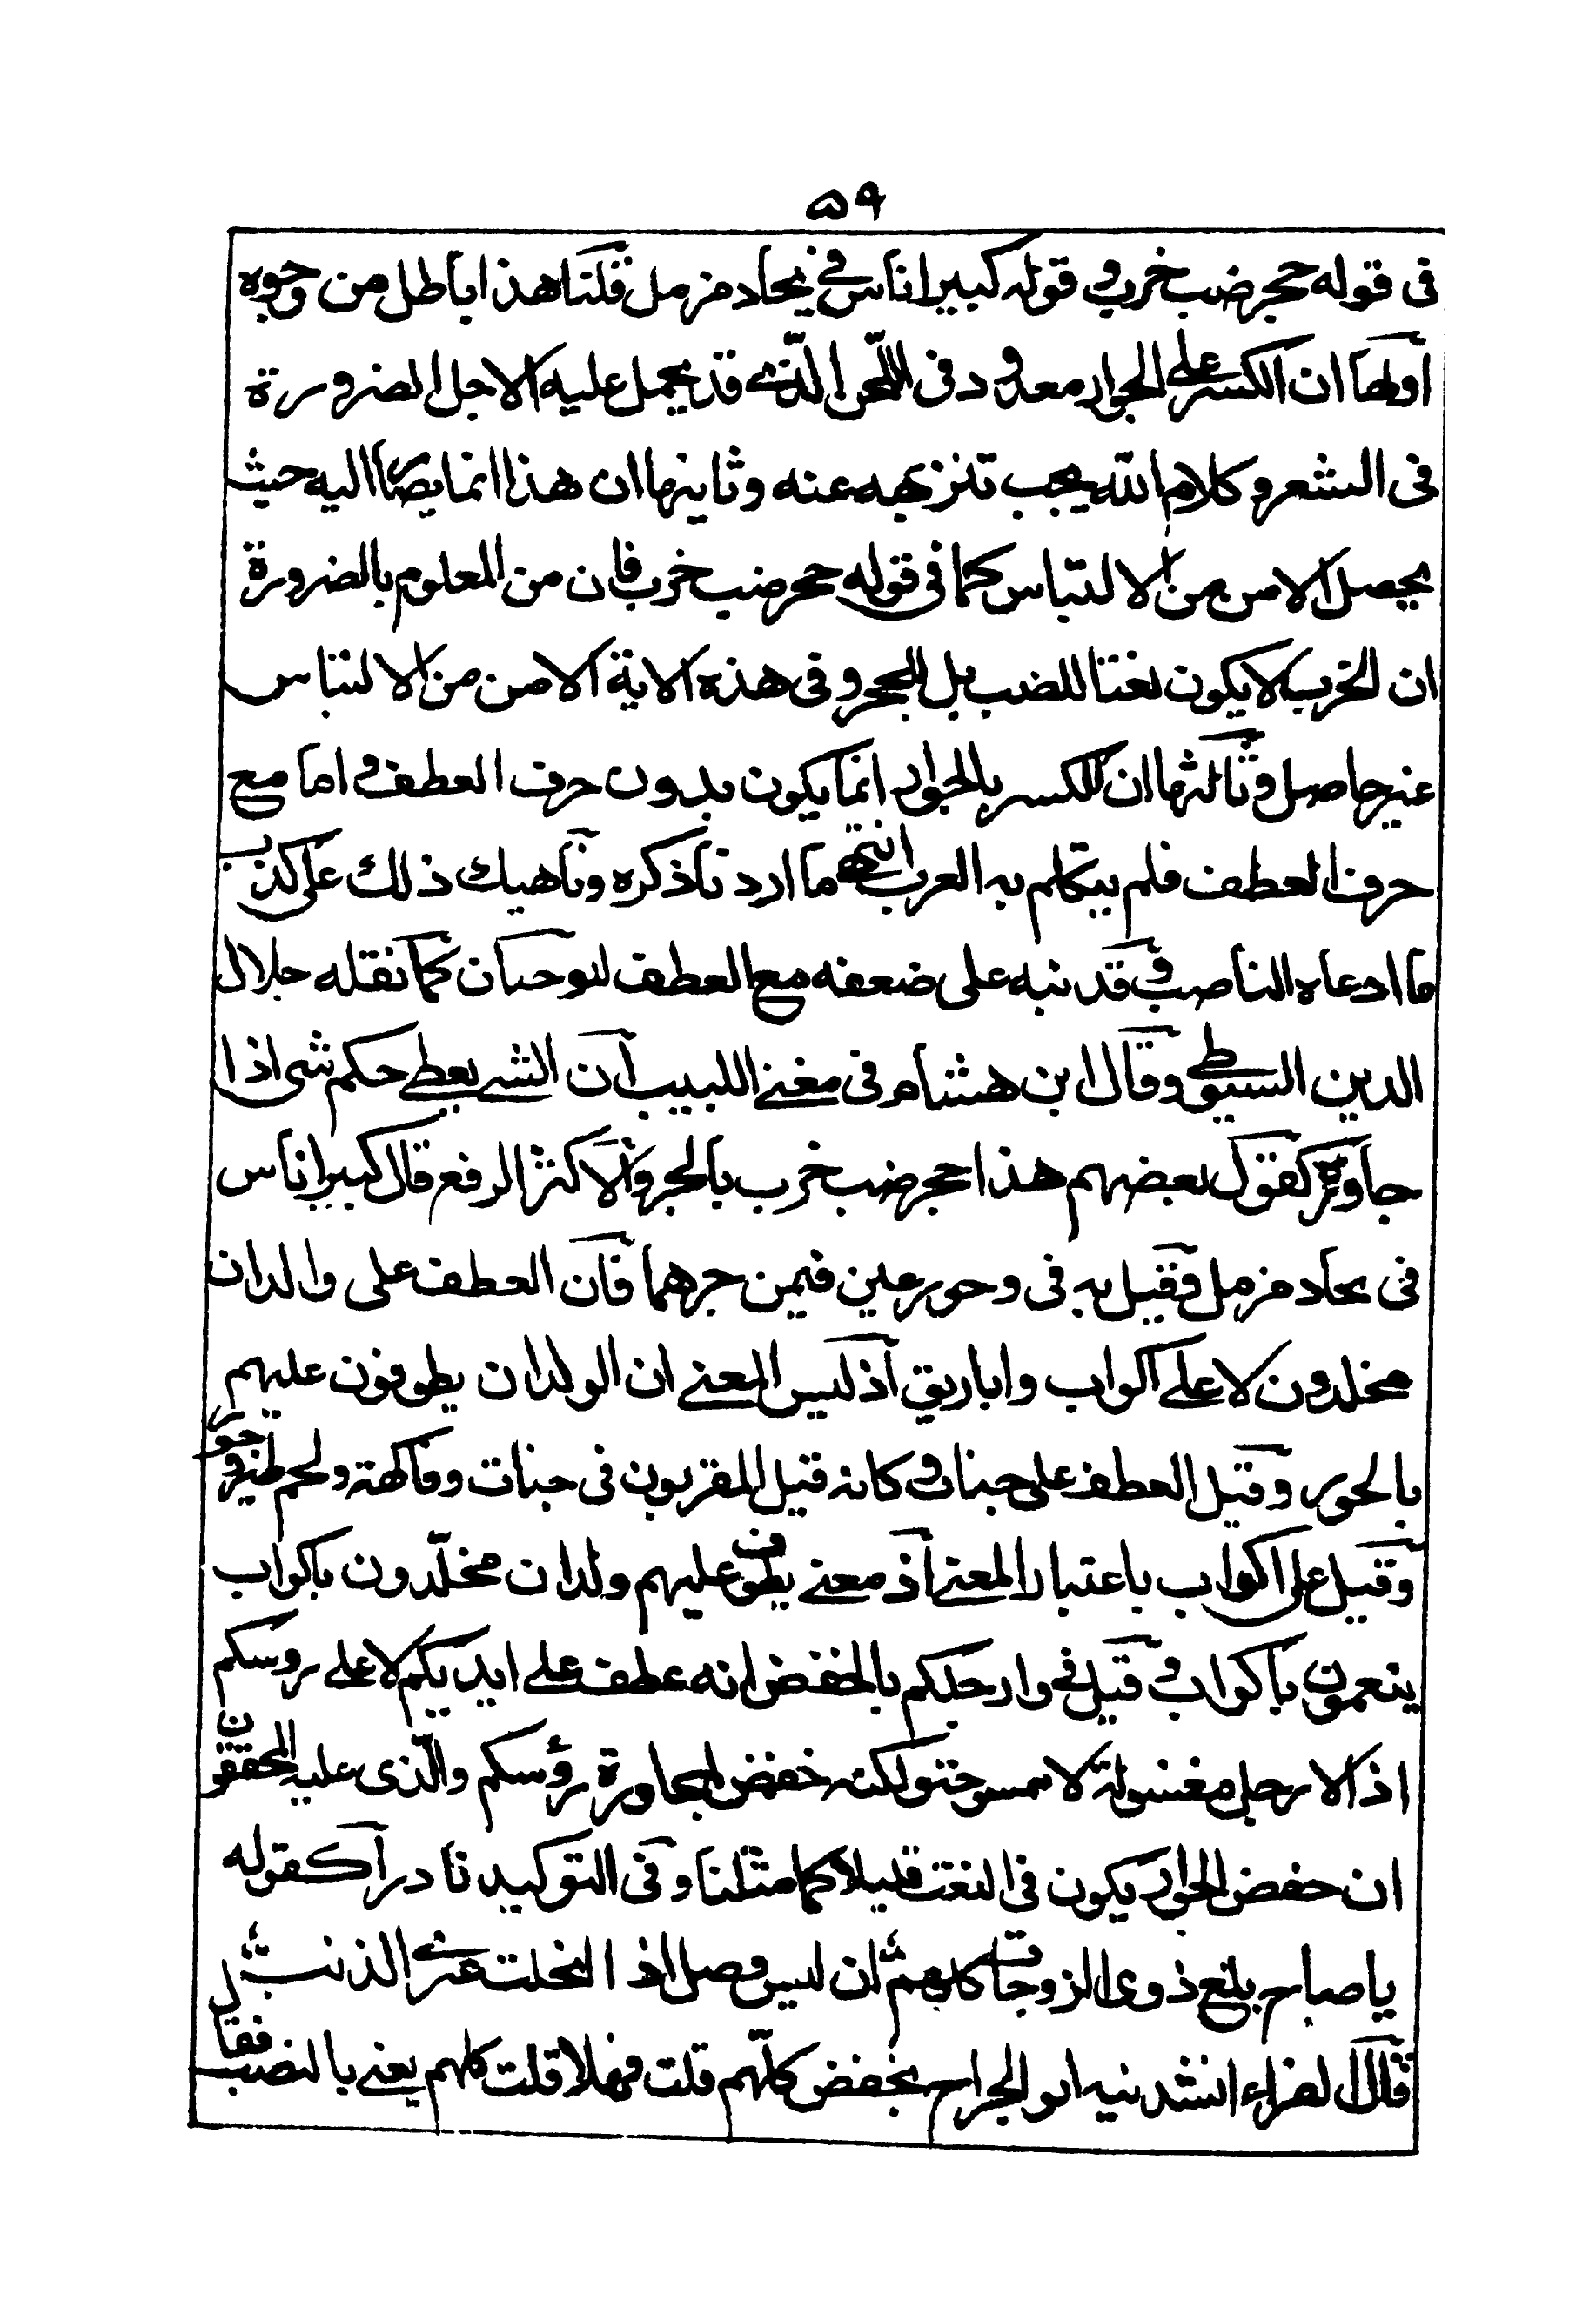 ۵۹
فى قوله حجر ضب خرب و قوله كبير اناس فى بجاد مزمل قلنا هذا باطل من وجوه
اولها ان الكسر على الجوار معدود فى اللحن الّذى قد يحمل عليه لاجل الضرورة
فى الشعر و كلام الله يجب تنزيهه عنه وثانيها ان هذا انما يصار اليه حيث
يحصل الامن من الالتباس كما فى قوله حجر ضب خرب فان من المعلوم بالضرورة
ان الخرب لا يكون نعتا للضب بل للجحر و فى هذه الاية الامن من الالتباس
غير حاصل و ثالثها ان الكسر بالجوار انما يكون بدون حرف العطف و اما مع
حرف العطف فلم يتكلم به العرب انتهى ما اردنا ذكره وناهيك ذلك على كذب
ما ادعاه الناصب و قد نبه على ضعفه مع العطف ابو حيان كما نقله جلال
الدين السيوطى و قال ابن هشام فى مغنى اللبيب ان الشى يعطى حكم شى اذا
جاوره كقول بعضهم هذا حجر ضب خرب بالجر والاكثر الرفع قال كبير اناس
فى بجاد مزمل و قيل به فى وحور عين فيمن جرهما فان العطف على والدان
مخلدون لا على اكواب واباريق اذ ليس المعنى ان الولدان يطوفون عليهم
بالحور وقيل العطف على جنات و كانه قيل المقربون فى جنات وفاكهة ولحم طير و حور
وقيل على اكواب باعتبار المعنى اذ معنى يطوف عليهم ولدان مخلّدون باكواب
ينعمون باكواب و قيل فى وارجلكم بالخفض انه عطف على ايديكم لا على روسكم
اذ الارجل مغسولة لا ممسوحة ولكنه خفض لمجاورة رؤسكم والّذى عليه المحققون
ان خفض الجوار يكون فى النعت قليلا كما مثلنا وفى التوكيد نادرا كقوله
يا صاح بلغ ذوى الزوجات كلهم ان ليس وصل اذ انحلت عرى الذنب
قال الفراء انشدنيه ابو الجراح بخفض كلّهم قلت فهلا قلت كلهم يعنى بالنصب فقال